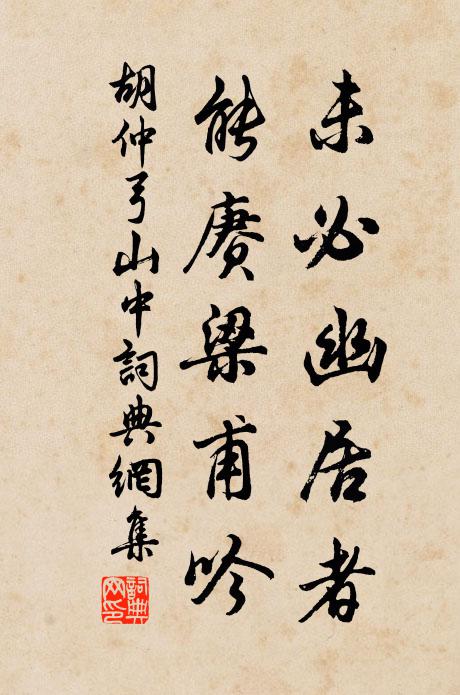 未必幽居者
能赓梁甫吟
胡仲弓山中詞典網集
詞典网印